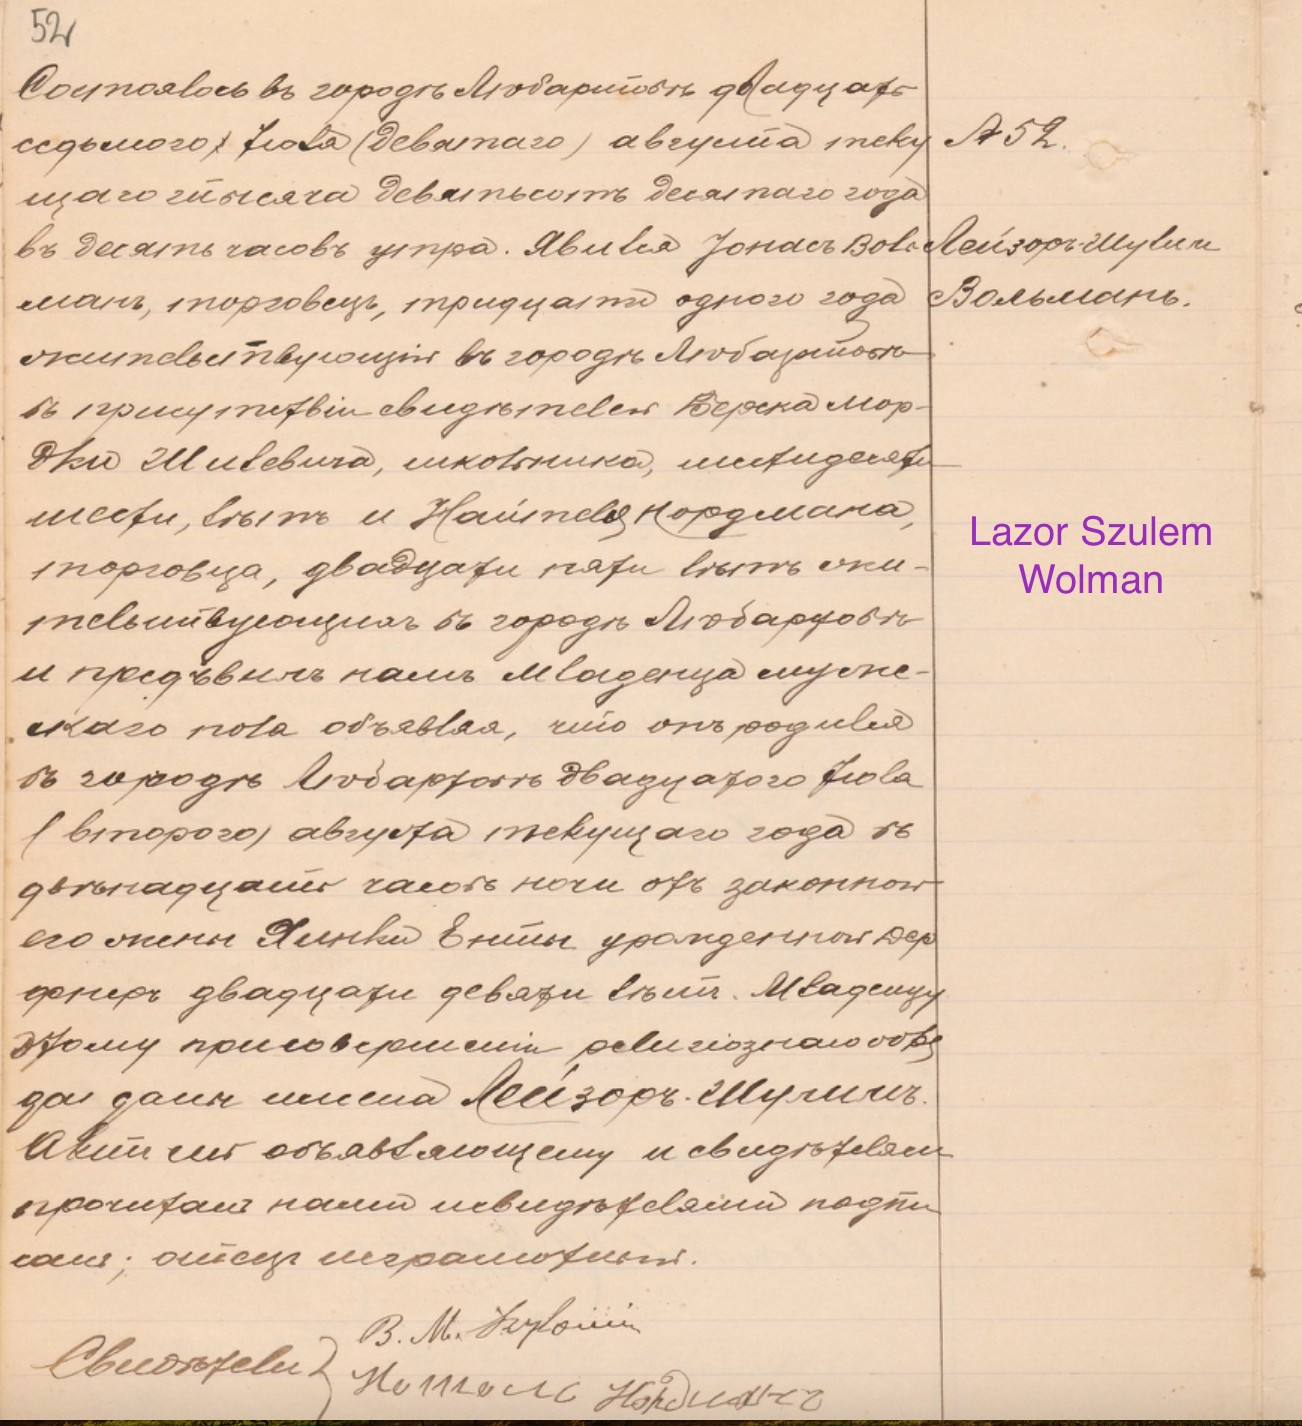 52
Состоялось въ городѣ Любартовѣ двадцать
седьмого Іюля (девятаго) августа теку
щаго тысяча девятьсотъ десятаго года
въ десять часовъ утра. Явился Іонасъ Воль
манъ, торговецъ, тридцати одного года
жительствующій въ городѣ Любартовѣ
въ присутствіи свидѣтелей Берека Мор-
дки Шилевича, школьника, шестидесяти
шести, лѣтъ и Найтеля Нордмана,
торговца, двадцати пяти лѣтъ жи-
тельствующихъ въ городѣ Любартовѣ
и предъявилъ намъ младенца муже-
скаго пола объявляя, что онъ родился
въ городѣ Любартовѣ двадцатого Іюля
(второго) августа текущаго года въ
двѣнадцать часовъ ночи отъ законной
его жены Хинки Енты урожденной Дер
фнеръ двадцати девяти лѣтъ. Младенцу
этому при совершеніи религіознаго обря
да даны имена Лейзоръ-Шулимъ.
Актъ сей объявляющему и свидѣтелямъ
прочитанъ нами и свидѣтелями подпи
санъ; отецъ неграмотный.
Свидѣтели
В. М.
Нордманъ
№ 52.
Лейзоръ-Шулим
Вольманъ.
Lazor Szulem
Wolman